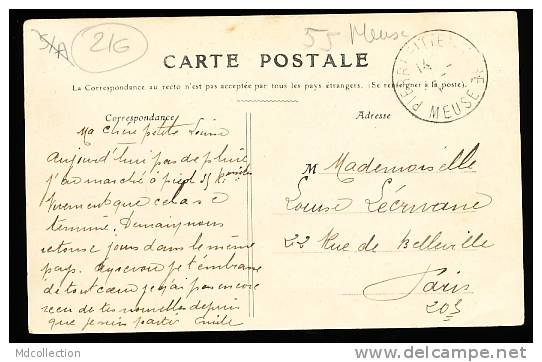 S/A
216
55 Meuse
CARTE POSTALE
La Correspondance au recto n'est pas acceptée par tous les pays étrangers. (Se renseigner à la poste).
Correspondance
Adresse
MEUSE
Ma chère petite Louise
aujourd'hui pas de pluie
j'ai marché à pied 25 K.
vivement que cela se
termine. Demain nous
sommes toujours dans le même
pays. Au revoir je t'embrasse
de tout cœur je n'ai pas encore
reçu de tes nouvelles depuis
que je suis parti Emile
M Mademoiselle
Louise Lécrivane
22 Rue de Belleville
Paris
20e
MDCollection
http://www.delcampe.net